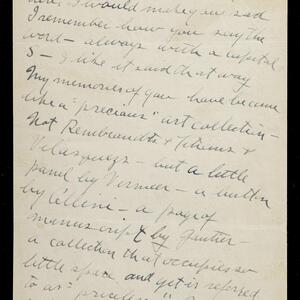 I would make you sad
I remember how you say the
word - always with a capital
S - I like it said that way
My memories of you have become
like a "precious" art collection -
Not Rembrandts & Titians &
Velasquezs - but a little
panel by Vermeer - a button
by Cellini - a page of
manuscript by
a collection that occupies so
little space and yet is referred
to as "priceless"